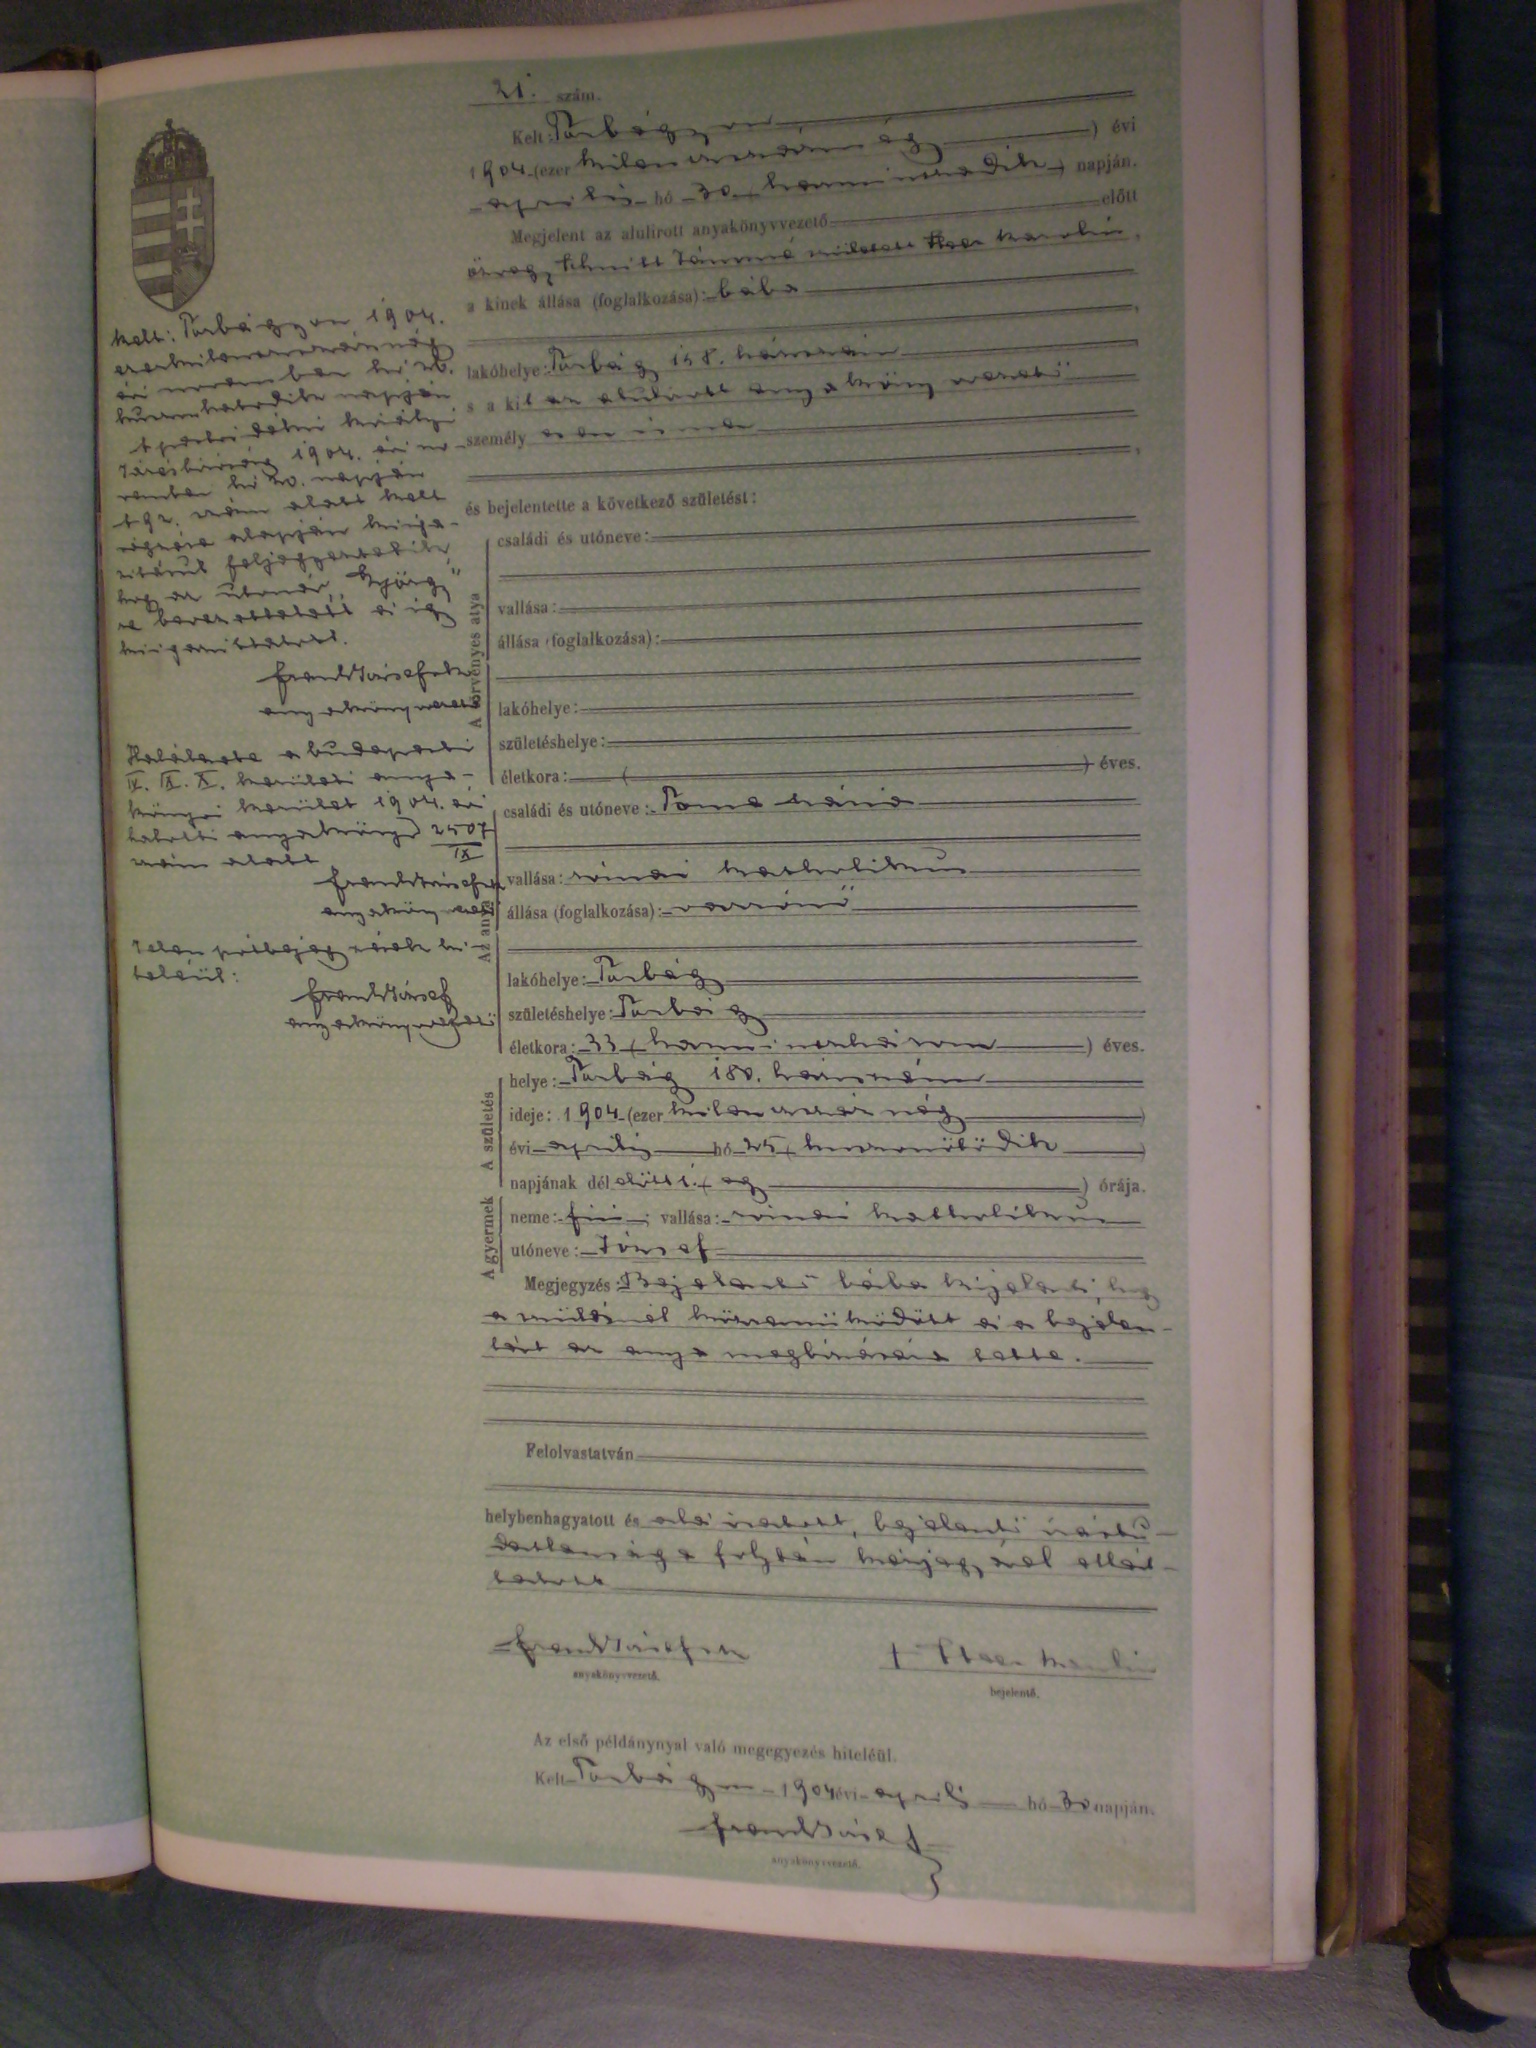 21. szám.
Kelt: Törbágyon
1904. (ezer kilenczszáz négy) évi
április hó 30 (harminczadik) napján.
Megjelent az alulirott anyakönyvvezető előtt
özvegy Schmitt Jánosné született Karolin,
a kinek állása (foglalkozása): bába
lakóhelye: Törbágy 158. házszám
s a kit az alulirott anyakönyvvezető
személy
és bejelentette a következő születést:
A törvényes atya
családi és utóneve:
vallása:
állása (foglalkozása):
lakóhelye:
születéshelye:
életkora: ( ) éves.
Az anya
családi és utóneve: Mária
vallása: római katholikus
állása (foglalkozása): varrónő
lakóhelye: Törbágy
születéshelye: Törbágy
életkora: 33 (harminczhárom) éves.
A születés
helye: Törbágy 180. házszám
ideje: 1904. (ezer kilenczszáz négy)
évi április hó 25 (huszonötödik)
napjának délelőtt 1. (egy) órája.
A gyermek
neme: fiú; vallása: római katholikus
utóneve: József
Megjegyzés: Bejelentő bába kijelenti, hogy
a szülésnél közreműködött és a bejelen-
tést az anya megbízására tette.
Felolvastatván
helybenhagyatott és aláiratott, bejelentő írástu-
datlansága folytán kézjegyével ellát-
tatott
Frankl József
anyakönyvvezető.
+ Karolin
bejelentő.
Az első példánynyal való megegyezés hiteléül.
Kelt Törbágyon 1904 évi április hó 30 napján.
Frankl József
anyakönyvvezető.
Kelt: Törbágyon 1904.
ezerkilenczszáznégy
évi november hó 26.
huszonhatodik napján
királyi
Járásbíróság 1904. évi no-
vember hó 20. napján
szám alatt kelt
végzése alapján kiiga-
zításul feljegyeztetik,
hogy az utónév „György"
re
kiigazíttatott.
Frankl József
anyakönyvvezető
Halálesete a budapesti
IV. IX. X. kerületi anya-
könyvi kerület 1904. évi
halotti anyakönyv 2507
IX
szám alatt
Frankl József
anyakönyvvezető
Jelen hi-
teléül:
Frankl József
anyakönyvvezető